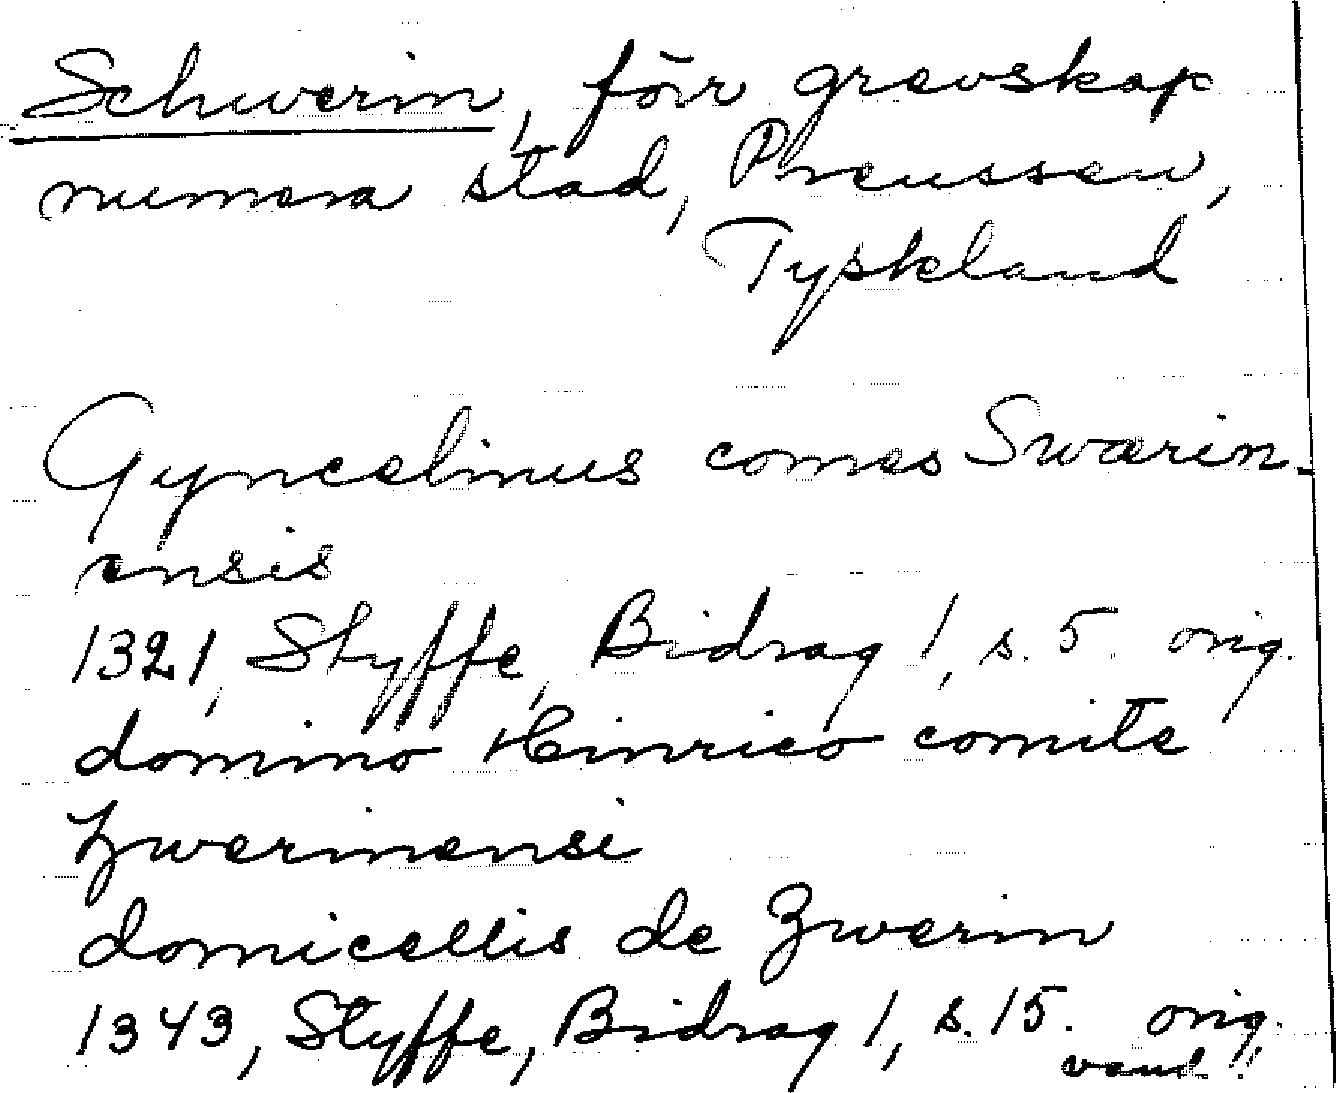 Schwerin, förr grevskap
numera stad, Preussen,
Tyskland
Gyncelinus comes Swærin-
ensis
1321, Styffe, Bidrag 1, s. 5. orig.
domino Hinrico comite
Zwerinensi
domicellis de Zwerin
1343, Styffe, Bidrag 1, s. 15. orig.
vänd!